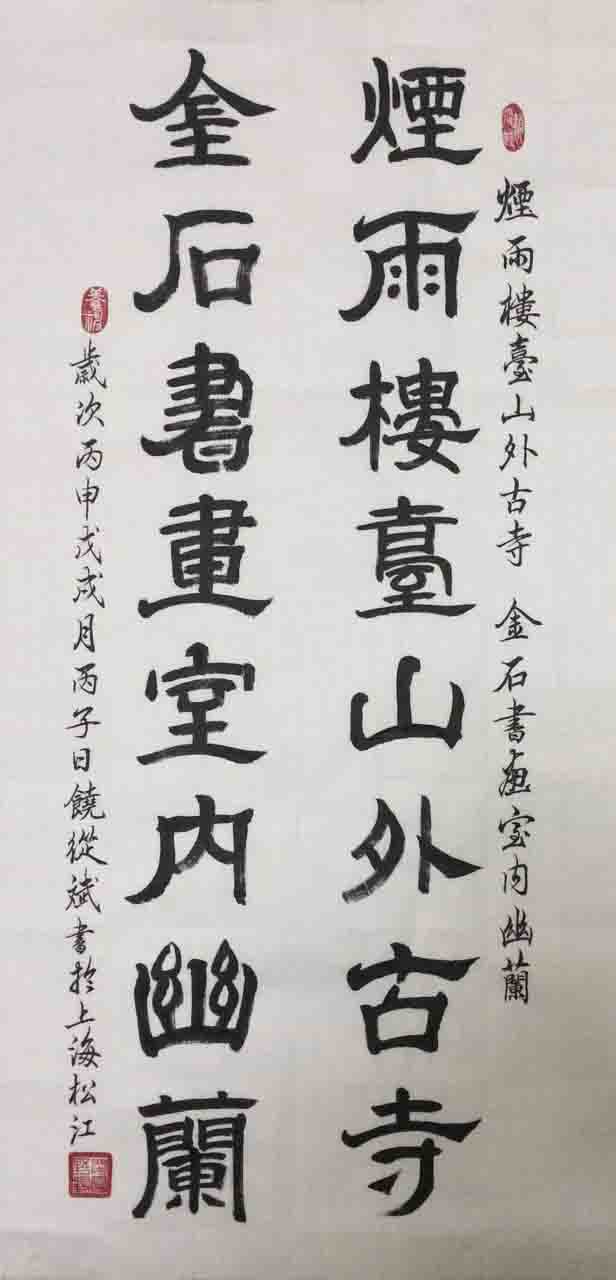 煙雨樓臺山外古寺 金石書畫室内幽蘭
煙雨樓臺山外古寺
金石書畫室内幽蘭
歲次丙申戊戌月丙子日饒從斌書於上海松江